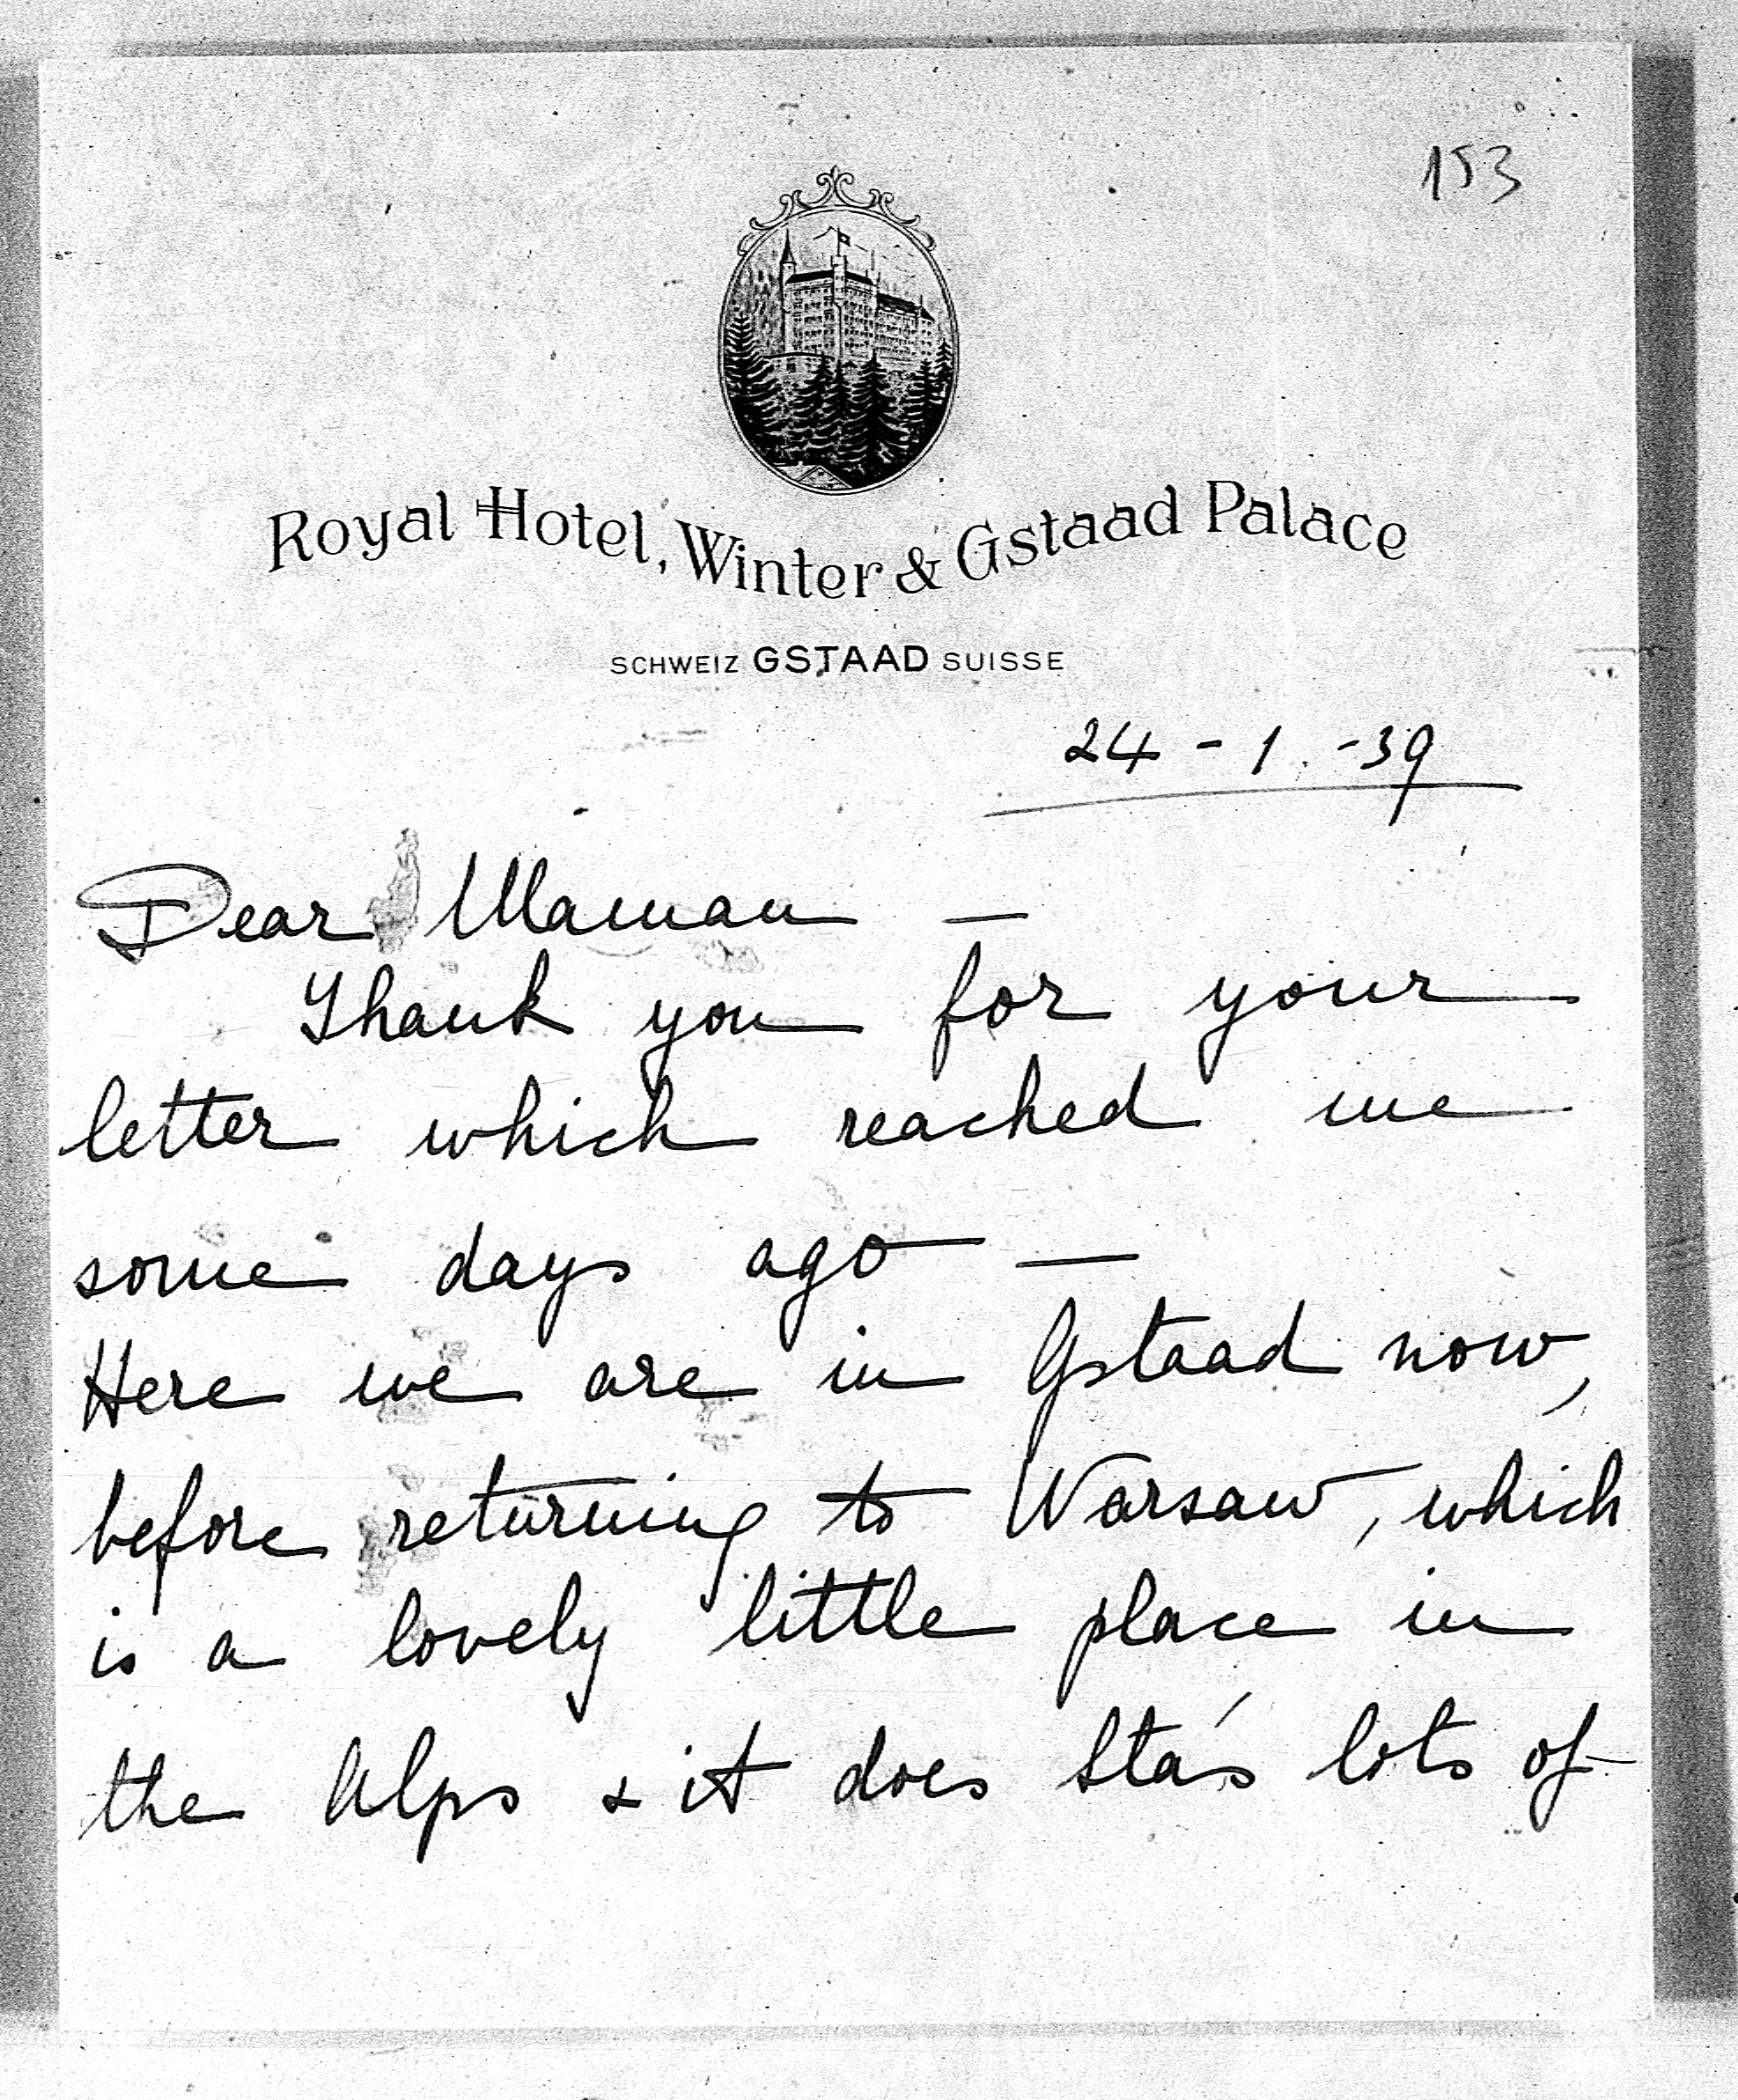 153
Royal Hotel, Winter & Gstaad Palace
SCHWEIZ GSTAAD SUISSE
24 - 1. - 39
Dear Maman —
Thank you for your
letter which reached me
some days ago —
Here we are in Gstaad now,
before returning to Warsaw, which
is a lovely little place in
the Alps & it does Stás lots of